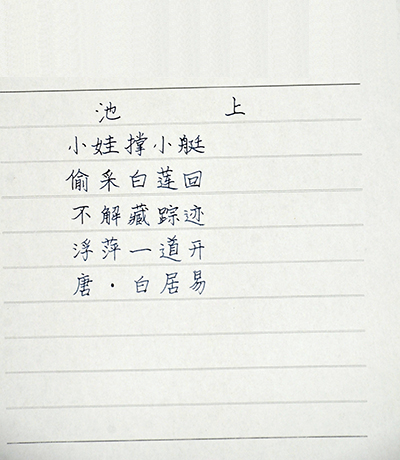 池 上
小娃撑小艇
偷采白莲回
不解藏踪迹
浮萍一道开
唐·白居易